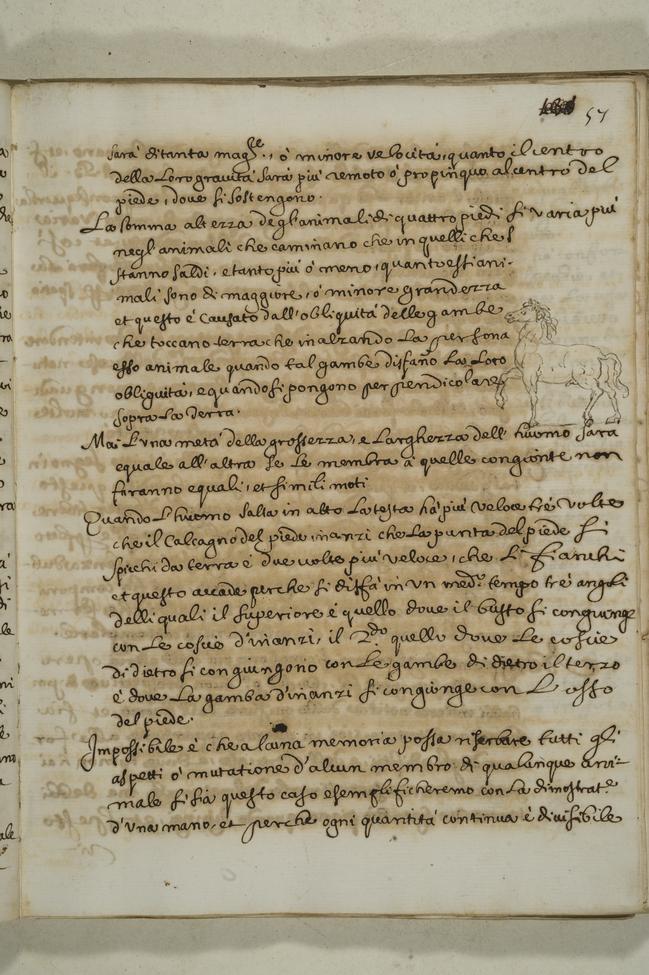 57
sarà di tanta magre., ò minore velocità, quanto il centro
della Loro gravità sarà più remoto ò propinquo al centro del
piede, dove si sostengono.
La somma altezza degl'animali di quattro piedi si varia più
negl'animali che caminano che in quelli che s
stanno saldi, e tanto più ò meno, quanto essi ani-
mali sono di maggiore, ò minore grandezza
et questo è causato dall'obliquità delle gambe
che toccano terra che inalzando La persona
esso animale quando tal gambe disfano La Loro
obliquità, e quando si pongono perpendicolare
sopra La Terra.
Mai L'una metà della grossezza, e Larghezza dell'huomo sarà
equale all'altra se Le membra à quelle congionte non
faranno equali, et simili moti
Quando L'huomo salta in alto La testa hà più veloce trè volte
che il Calcagno del piede, inanzi che La punta del piede si
spicchi da terra è due volte più veloce, che Li Fianchi
et questo accade perche si disfà in un med.o tempo trè angoli
delli quali il superiore è quello dove il busto si congiunge
con Le coscie d'inanzi, il 2do quello dove Le coscie
di dietro si congiungono con Le gambe di dietro il terzo
è dove La gamba d'inanzi si congiunge con L'osso
del piede.
Impossibile è che alcuna memoria possa riserbare tutti gli
aspetti ò mutatione d'alcun membro di qualunque ani-
male si sia questo caso esemplificheremo con La dimostrat.e
d'una mano, et perche ogni quantità continua è divisibile